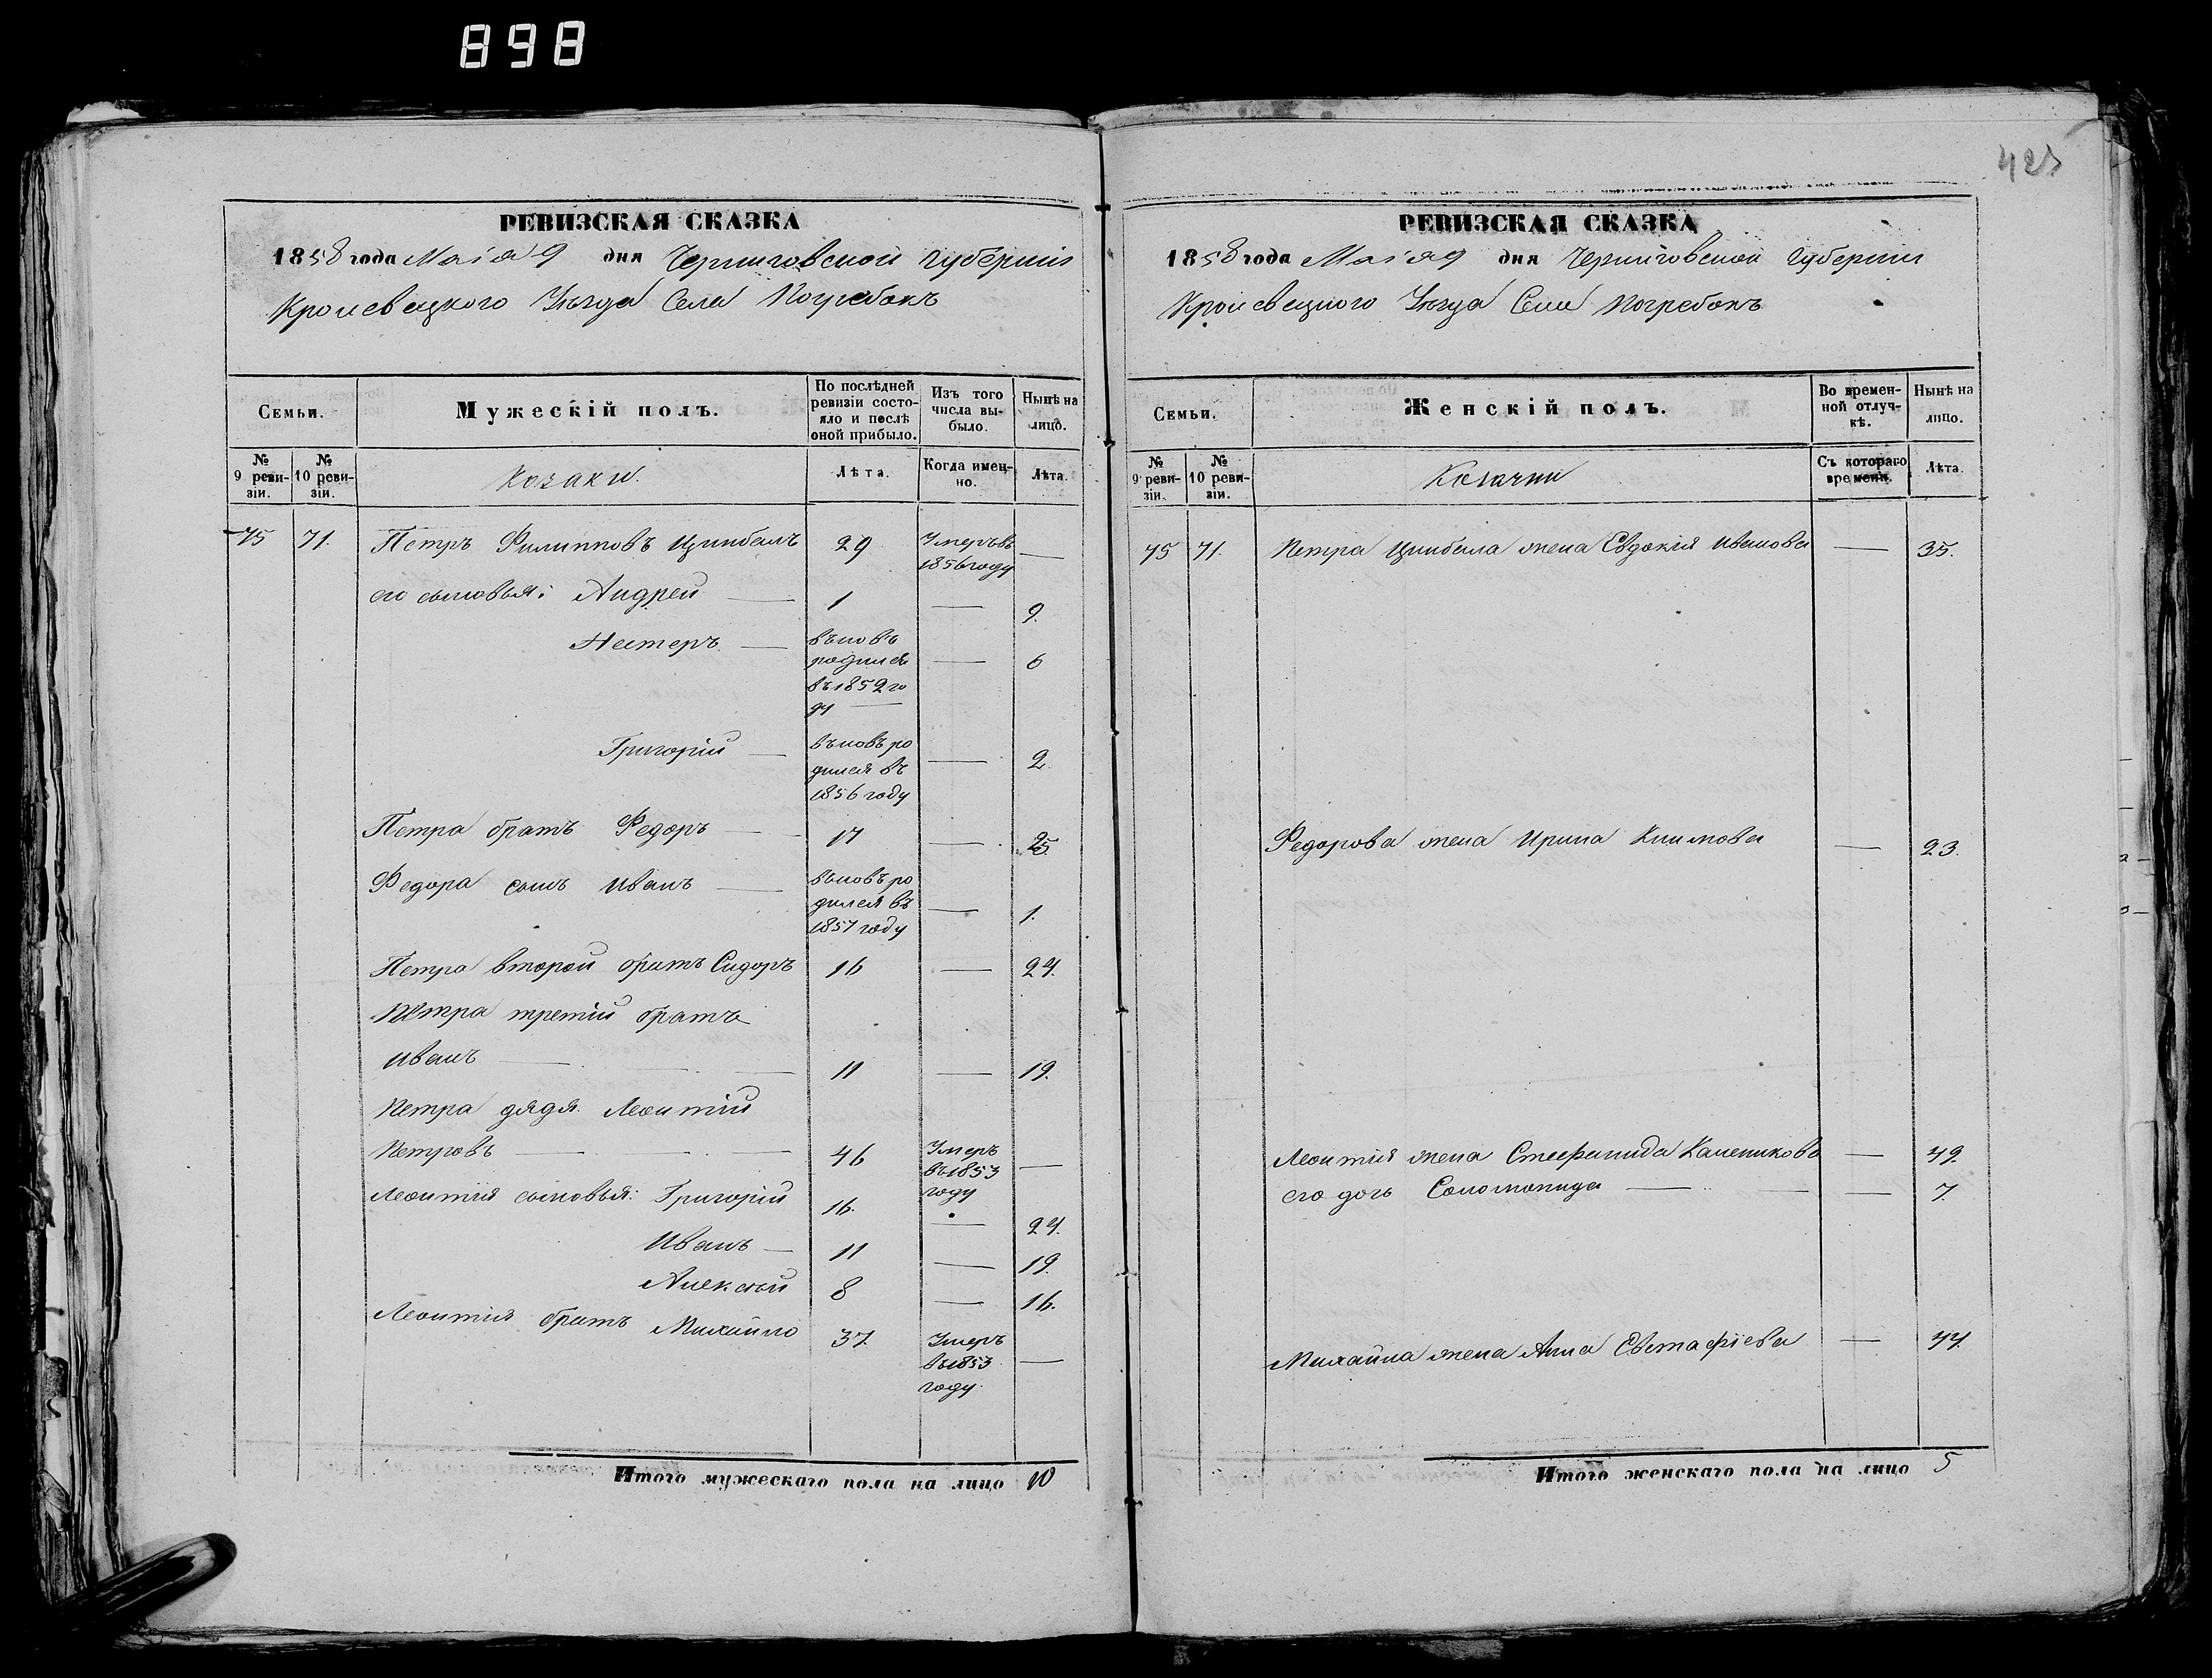 898
423
РЕВИЗСКАЯ СКАЗКА
1858 года Маія 9 дня Черниговской Губерніи
Кролевецкого Уѣзда Села Погребокъ
Семьи.
Мужескій полъ.
По послѣдней ревизіи состояло и послѣ оной прибыло.
Изъ того числа выбыло.
Нынѣ на лицо.
№ 9 ревизіи.
№ 10 ревизіи.
Козаки.
Лѣта.
Когда именно.
Лѣта.
75 71. Петръ Филипповъ Цимбалъ 29 Умеръ въ 1856 году —
его сыновья: Андрей — 1 — 9.
Нестеръ — въновъ родился въ 1852 году — — 6
Григорій — въновъ родился въ 1856 году — 2.
Петра братъ Федоръ — 17 — 25.
Федора сынъ Иванъ — въновъ родился въ 1857 году — 1.
Петра второй братъ Сидоръ 16 — 24.
Петра третій братъ
Иванъ — 11 — 19.
Петра дядя Леонтій
Петровъ — 46 Умеръ въ 1853 году —
Леонтія сыновья: Григорій 16. — 24.
Иванъ — 11 — 19.
Алексѣй 8 — 16.
Леонтія братъ Михайло 37. Умеръ въ 1853 году. —
Итого мужескаго пола на лицо 10
РЕВИЗСКАЯ СКАЗКА
1858 года Маія 9 дня Черниговской Губерніи
Кролевецкого Уѣзда Села Погребокъ
Семьи.
Женскій полъ.
Во временной отлучкѣ.
Нынѣ на лицо.
№ 9 ревизіи.
№ 10 ревизіи.
Козачки
Съ котораго времени.
Лѣта.
75 71. Петра Цимбала жена Евдокія Иванова — 35.
Федорова жена Ирина Климова — 23.
Леонтія жена Стефанида — 49.
его дочь Соломонида — — 7.
Михайла жена Анна Евстафіева — 44.
Итого женскаго пола на лицо 5